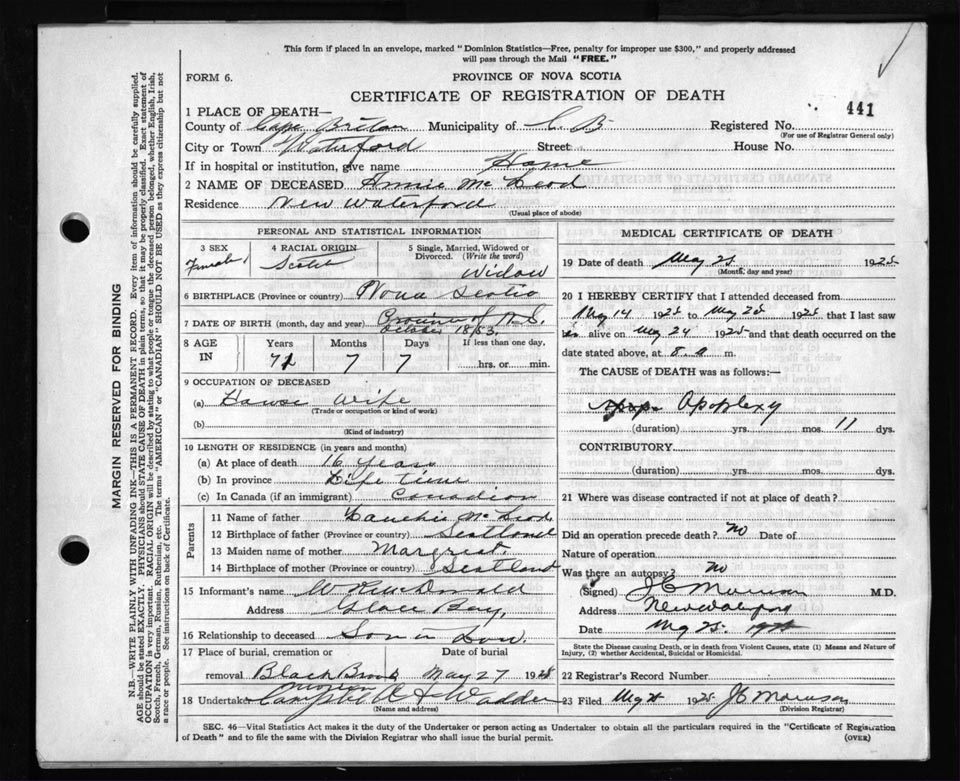 This form if placed in an envelope, marked "Dominion Statistics—Free, penalty for improper use $300," and properly addressed
will pass through the Mail "FREE."
FORM 6.
PROVINCE OF NOVA SCOTIA
CERTIFICATE OF REGISTRATION OF DEATH
441
1 PLACE OF DEATH—
County of Cape Breton Municipality of C B Registered No.
(For use of Registrar General only)
City or Town Waterford Street House No.
If in hospital or institution, give name Home
2 NAME OF DECEASED Annie McLeod
Residence New Waterford
(Usual place of abode)
PERSONAL AND STATISTICAL INFORMATION
3 SEX 4 RACIAL ORIGIN 5 Single, Married, Widowed or
Divorced. (Write the word)
Female Scotch Widow
6 BIRTHPLACE (Province or country) Nova Scotia
Province of N.S.
7 DATE OF BIRTH (month, day and year) October 1853
8 AGE IN Years Months Days If less than one day,
71 7 7 hrs. or min.
9 OCCUPATION OF DECEASED
(a) House Wife
(Trade or occupation or kind of work)
(b)
(Kind of industry)
10 LENGTH OF RESIDENCE (in years and months)
(a) At place of death 16 Years
(b) In province Life time
(c) In Canada (if an immigrant) Canadian
Parents
11 Name of father McLeod
12 Birthplace of father (Province or country) Scotland
13 Maiden name of mother Margriet
14 Birthplace of mother (Province or country) Scotland
15 Informant's name McDonald
Address Glace Bay,
16 Relationship to deceased Son in Law.
17 Place of burial, cremation or Date of burial
removal Black Brook May 27 1925
18 Undertaker Wadden
(Name and address)
MEDICAL CERTIFICATE OF DEATH
19 Date of death May 25 1925
(Month, day and year)
20 I HEREBY CERTIFY that I attended deceased from
May 14 1925 to May 25 1925 that I last saw
alive on May 24 1925 and that death occurred on the
date stated above, at 5 a m.
The CAUSE of DEATH was as follows:—
Apoplexy
(duration) yrs. mos. 11 dys.
CONTRIBUTORY
(duration) yrs. mos. dys.
21 Where was disease contracted if not at place of death?
Did an operation precede death? no Date of
Nature of operation
Was there an autopsy? no
(Signed) J E Morrison M.D.
Address New Waterford
Date May 25
State the Disease causing Death, or in Death from Violent Causes, state (1) Means and Nature of
Injury, (2) whether Accidental, Suicidal or Homicidal.
22 Registrar's Record Number
23 Filed 1925 J E Morrison
(Division Registrar)
SEC. 46—Vital Statistics Act makes it the duty of the Undertaker or person acting as Undertaker to obtain all the particulars required in the "Certificate of Registration
of Death" and to file the same with the Division Registrar who shall issue the burial permit. (OVER)
MARGIN RESERVED FOR BINDING
N.B.—WRITE PLAINLY WITH UNFADING INK—THIS IS A PERMANENT RECORD. Every item of information should be carefully supplied.
AGE should be stated EXACTLY. PHYSICIANS should STATE CAUSE OF DEATH in plain terms, so that it may be properly classified. Exact statement of
OCCUPATION is very important. RACIAL ORIGIN will be described by stating to what people or tongue the deceased person belonged, whether English, Irish,
Scotch, French, German, Russian, Ruthenian, etc. The terms "AMERICAN" or "CANADIAN" SHOULD NOT BE USED as they express citizenship but not
a race or people. See instructions on back of Certificate.